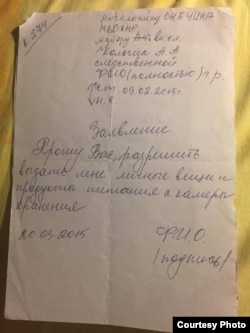 л. 274
Начальнику
майору
Кольчик А А
следственной
ФИО (полностью) г.р.
09.02.2015г
Заявление
Прошу Вас, разрешить
выдать мне личные вещи и
продукты питания с камеры
хранения
20.03.2015
Ф.И.О.
(подпись)
Courtesy Photo